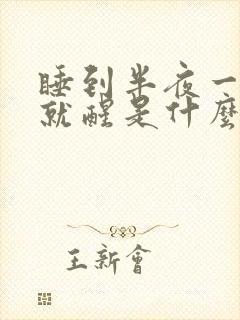 睡到半夜一
就醒是什麼
王新會